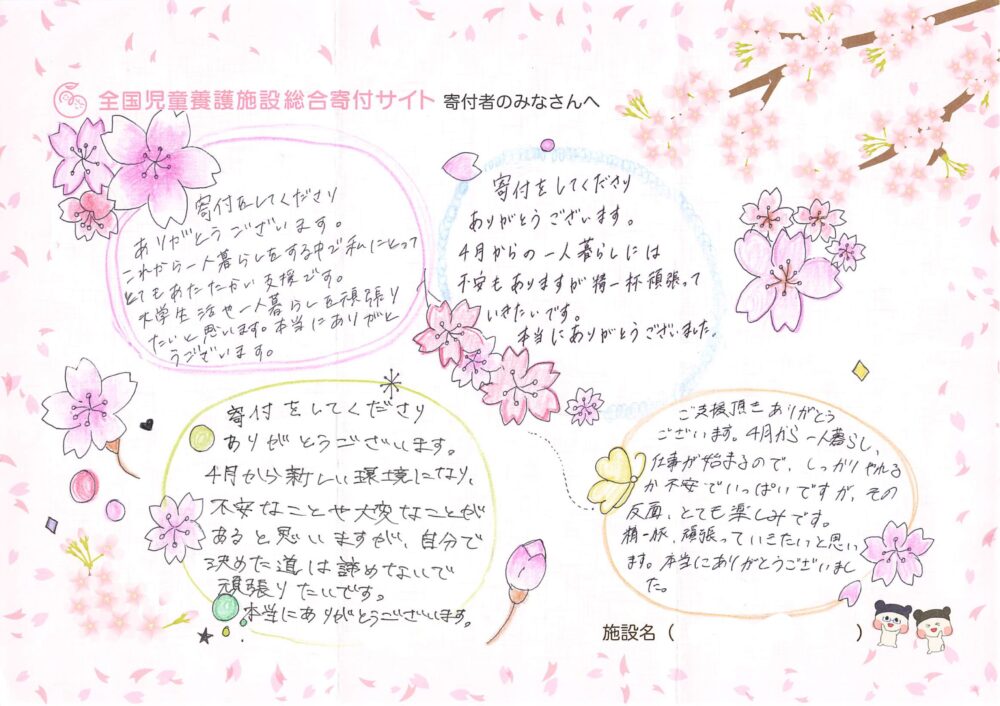 全国児童養護施設総合寄付サイト 寄付者のみなさんへ
寄付をしてくださり
ありがとうございます。
これから一人暮らしをする中で私にとって
とてもあたたかい支援です。
大学生活や一人暮らしを頑張り
たいと思います。本当にありがと
うございます。
寄付をしてくださり
ありがとうございます。
4月からの一人暮らしには
不安もありますが精一杯頑張って
いきたいです。
本当にありがとうございました。
寄付をしてくださり
ありがとうございます。
4月から新しい環境になり、
不安なことや大変なことが
あると思いますが、自分で
決めた道は諦めないで
頑張りたいです。
本当にありがとうございます。
ご支援頂きありがとう
ございます。4月から一人暮らし、
仕事が始まるので、しっかりやれる
か不安でいっぱいですが、その
反面、とても楽しみです。
精一旅、頑張っていきたいと思い
ます。本当にありがとうございまし
た。
施設名（ ）